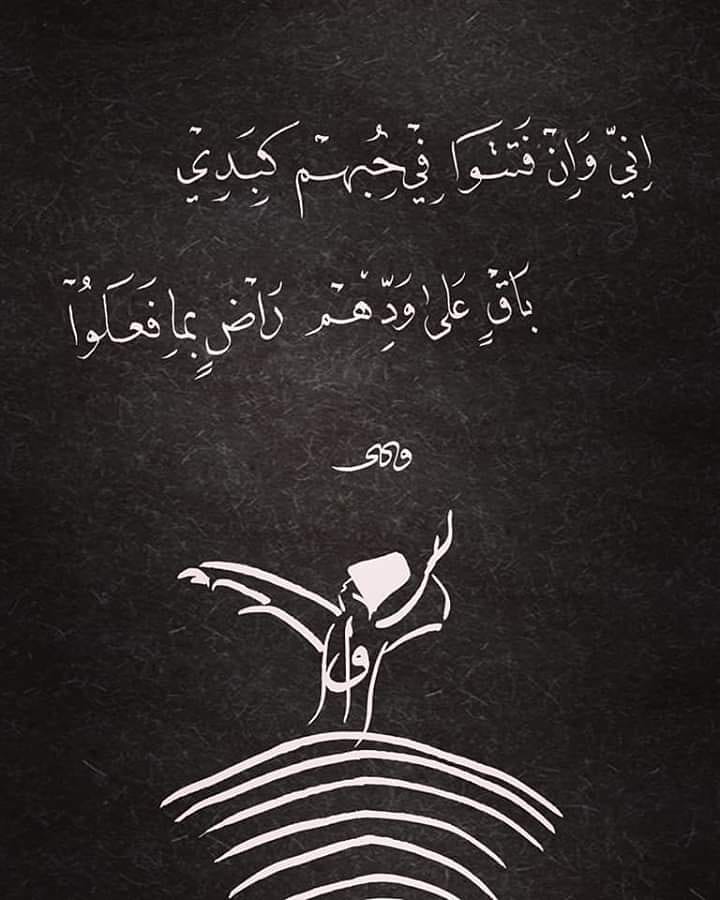 اِنّيْ وَاِنْ فَتَتوُا فِيْ حُبِهِمْ كَبَدِيْ
بَاقٍ عَلىٰ وَدِّهِمْ رَاضٍ بِمَا فَعَلُوْا